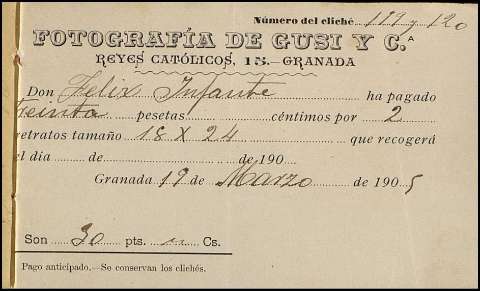 Número del cliché 177 y 120
FOTOGRAFÍA DE GUSI Y C.ª
REYES CATÓLICOS, 15.—GRANADA
Don Felix Infante ha pagado
treinta pesetas céntimos por 2
retratos tamaño 18 X 24 que recogerá
el día de de 190
Granada 19 de Marzo de 1905
Son 30 pts. " Cs.
Pago anticipado.—Se conservan los clichés.